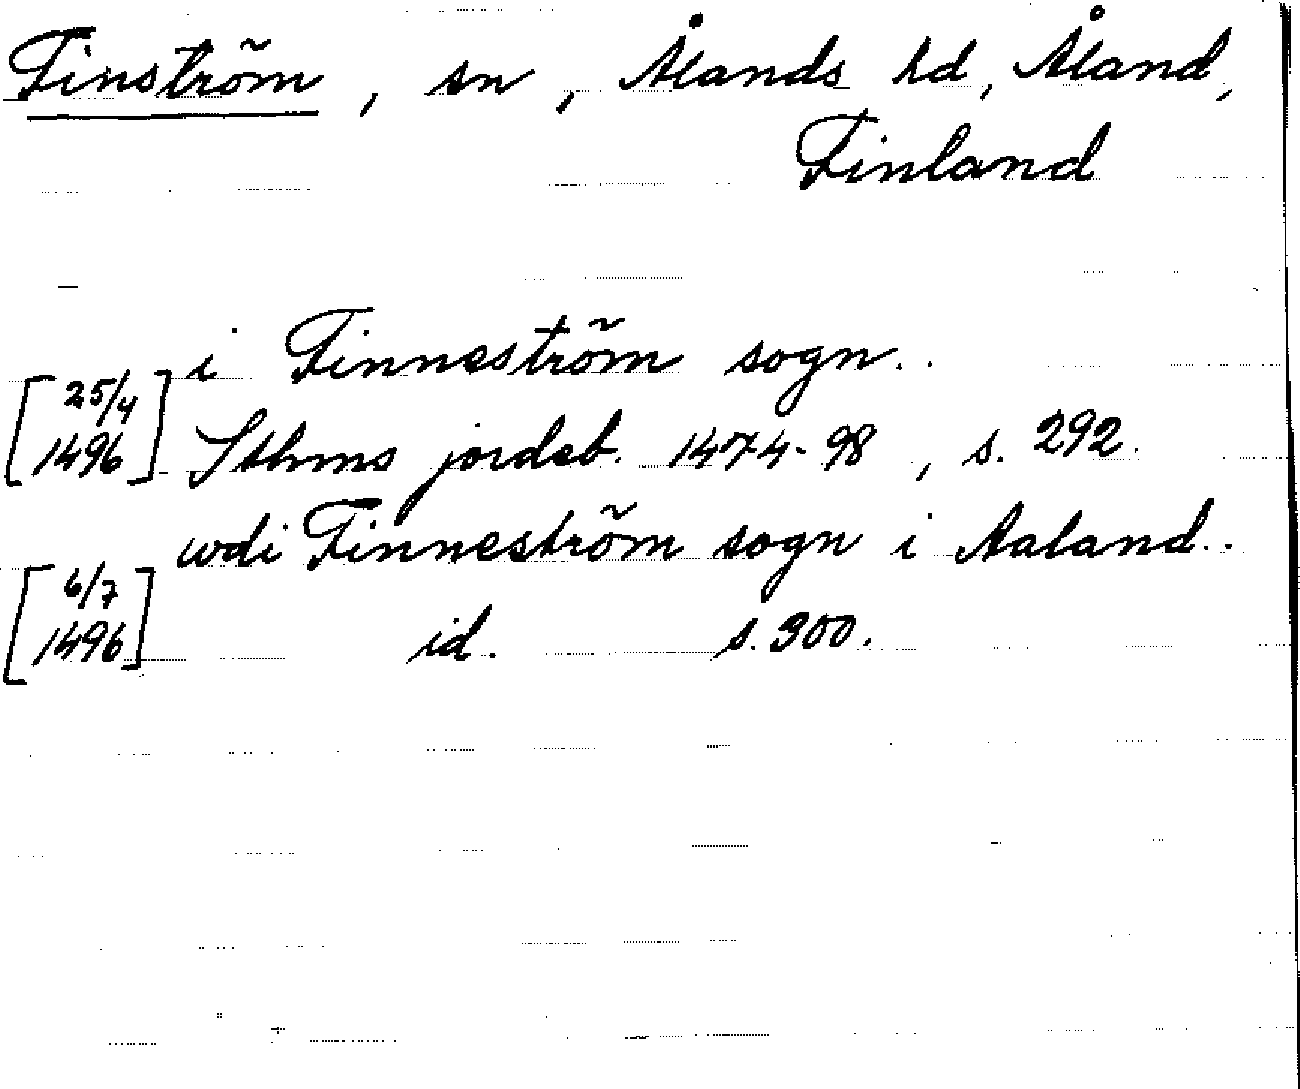 Finström, sn, Ålands hd, Åland,
Finland
i Finneström sogn..
[25/4 1496] Sthms jordeb. 1474-98, s. 292.
wdi Finneström sogn i Aaland..
[6/7 1496] id. s. 300.